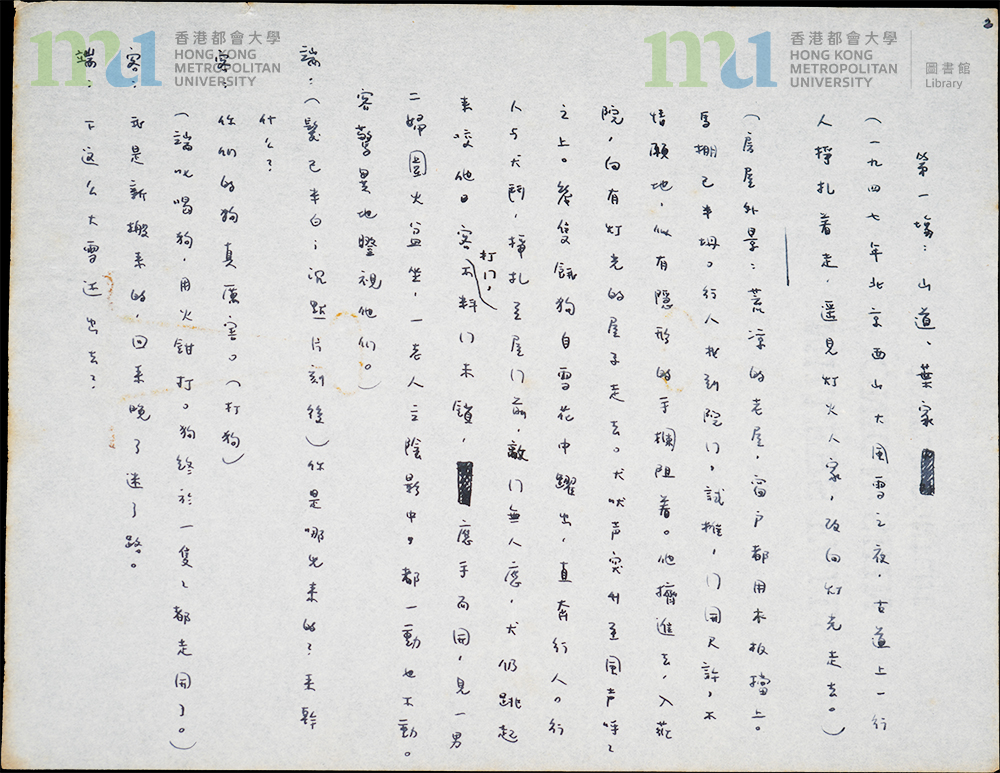 2
香港都會大學
HONG KONG
METROPOLITAN
UNIVERSITY
香港都會大學
HONG KONG
METROPOLITAN
UNIVERSITY
圖書館
Library
第一場：山道、葉家
（一九四七年北京西山大風雪之夜，古道上一行
人掙扎着走，遥見灯火人家，改向灯光走去。）
（房屋外景：荒凉的老屋，窗户都用木板擋上。
馬棚已半坍。行人找到院门，試推，门開尺許，不
情願地，似有隱形的手攔阻着。他擠進去，入花
院，向有灯光的屋子走去。犬吠声突升至風声呼〻
之上。幾隻餓狗自雪花中躍出，直奔行人。行
人与犬鬥，掙扎至屋门前，敲门無人應，犬仍跳起
来咬他。客打门，不料门未鎖，應手而開，見一男
二婦圍火盆坐，一老人立陰影中，都一動也不動。
客驚異地瞪視他们。）
端：（髮已半白；沉默片刻後）你是哪兒来的？来幹
什么？
客：你们的狗真厲害。（打狗）
（端吆喝狗，用火鉗打。狗終於一隻〻都走開了。）
客：我是新搬来的，回来晚了迷了路。
端：下这么大雪还出去？